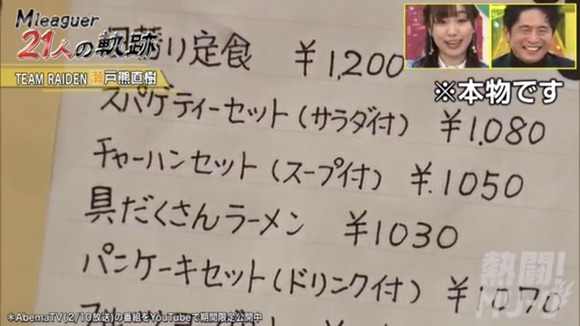 Mleaguer
21人の軌跡
TEAM RAIDEN 瀬戸熊直樹
※本物です
日替り定食 ¥1,200
スパゲティーセット(サラダ付) ¥1,080
チャーハンセット(スープ付) ¥.1050
具だくさんラーメン ¥1030
パンケーキセット(ドリンク付) ¥1070
熱闘!
*AbemaTV(2/10放送)の番組をYouTubeで期間限定公開中